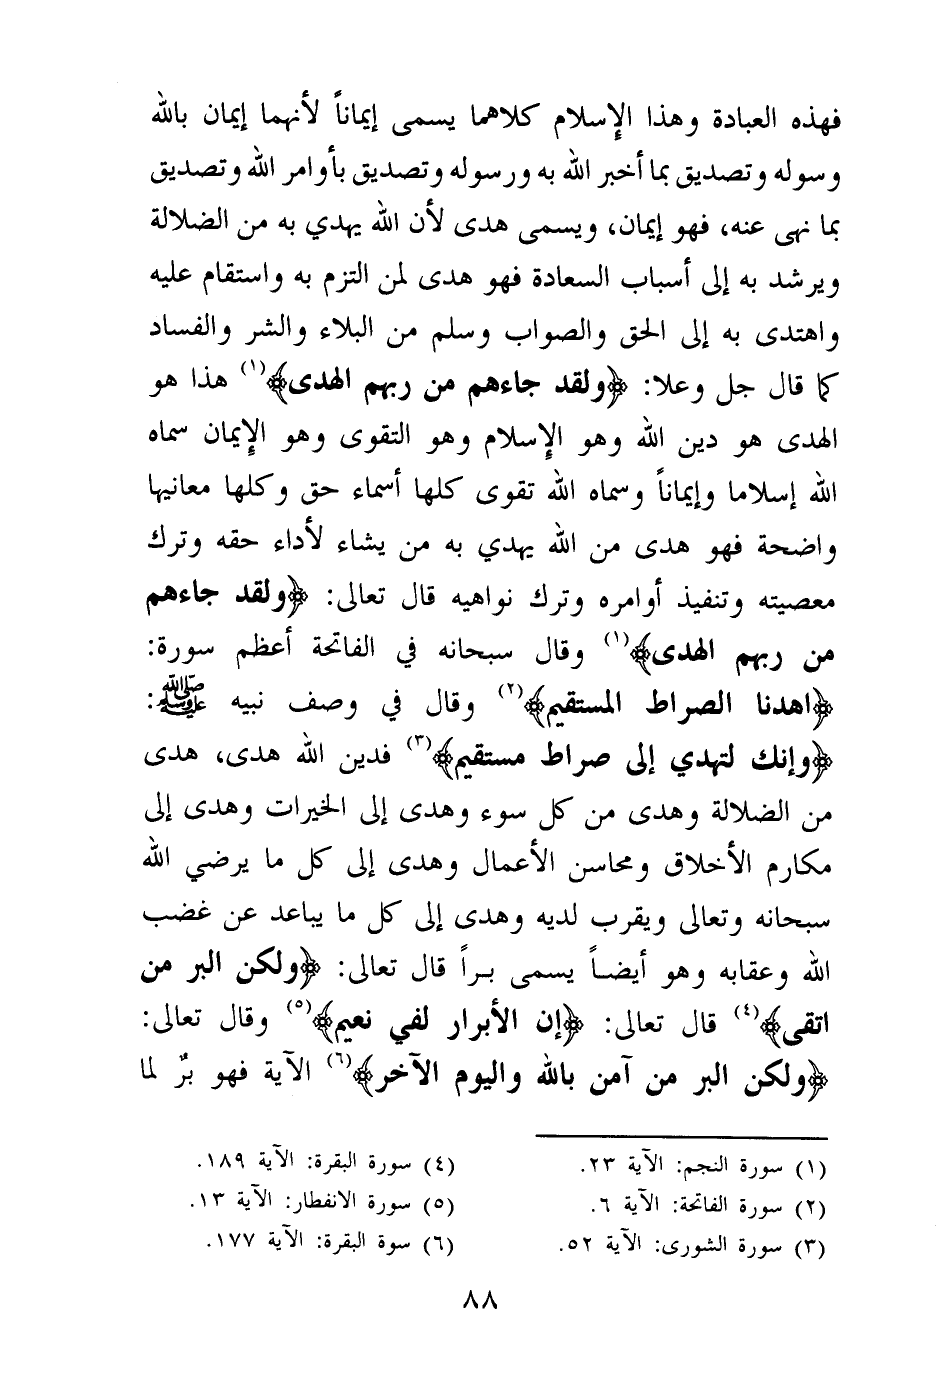 فهذه العبادة وهذا الإسلام كلاهما يسمى إيماناً لأنهما إيمان بالله
وسوله وتصديق بما أخبر الله به ورسوله وتصديق بأوامر الله وتصديق
بما نهى عنه، فهو إيمان، ويسمى هدى لأن الله يهدي به من الضلالة
ويرشد به إلى أسباب السعادة فهو هدى لمن التزم به واستقام عليه
واهتدى به إلى الحق والصواب وسلم من البلاء والشر والفساد
كما قال جل وعلا: ﴿ولقد جاءهم من ربهم الهدى﴾(١) هذا هو
الهدى هو دين الله وهو الإسلام وهو التقوى وهو الإيمان سماه
الله إسلاما وإيماناً وسماه الله تقوى كلها أسماء حق وكلها معانيها
واضحة فهو هدى من الله يهدي به من يشاء لأداء حقه وترك
معصيته وتنفيذ أوامره وترك نواهيه قال تعالى: ﴿ولقد جاءهم
من ربهم الهدى﴾(١) وقال سبحانه في الفاتحة أعظم سورة:
﴿اهدنا الصراط المستقيم﴾(٢) وقال في وصف نبيه ﷺ:
﴿وإنك لتهدي إلى صراط مستقيم﴾(٣) فدين الله هدى، هدى
من الضلالة وهدى من كل سوء وهدى إلى الخيرات وهدى إلى
مكارم الأخلاق ومحاسن الأعمال وهدى إلى كل ما يرضي الله
سبحانه وتعالى ويقرب لديه وهدى إلى كل ما يباعد عن غضب
الله وعقابه وهو أيضاً يسمى براً قال تعالى: ﴿ولكن البر من
اتقى﴾(٤) قال تعالى: ﴿إن الأبرار لفي نعيم﴾(٥) وقال تعالى:
﴿ولكن البر من آمن بالله واليوم الآخر﴾(٦) الآية فهو برٌ لما
(١) سورة النجم: الآية ٢٣.
(٢) سورة الفاتحة: الآية ٦.
(٣) سورة الشورى: الآية ٥٢.
(٤) سورة البقرة: الآية ١٨٩.
(٥) سورة الانفطار: الآية ١٣.
(٦) سوة البقرة: الآية ١٧٧.
٨٨